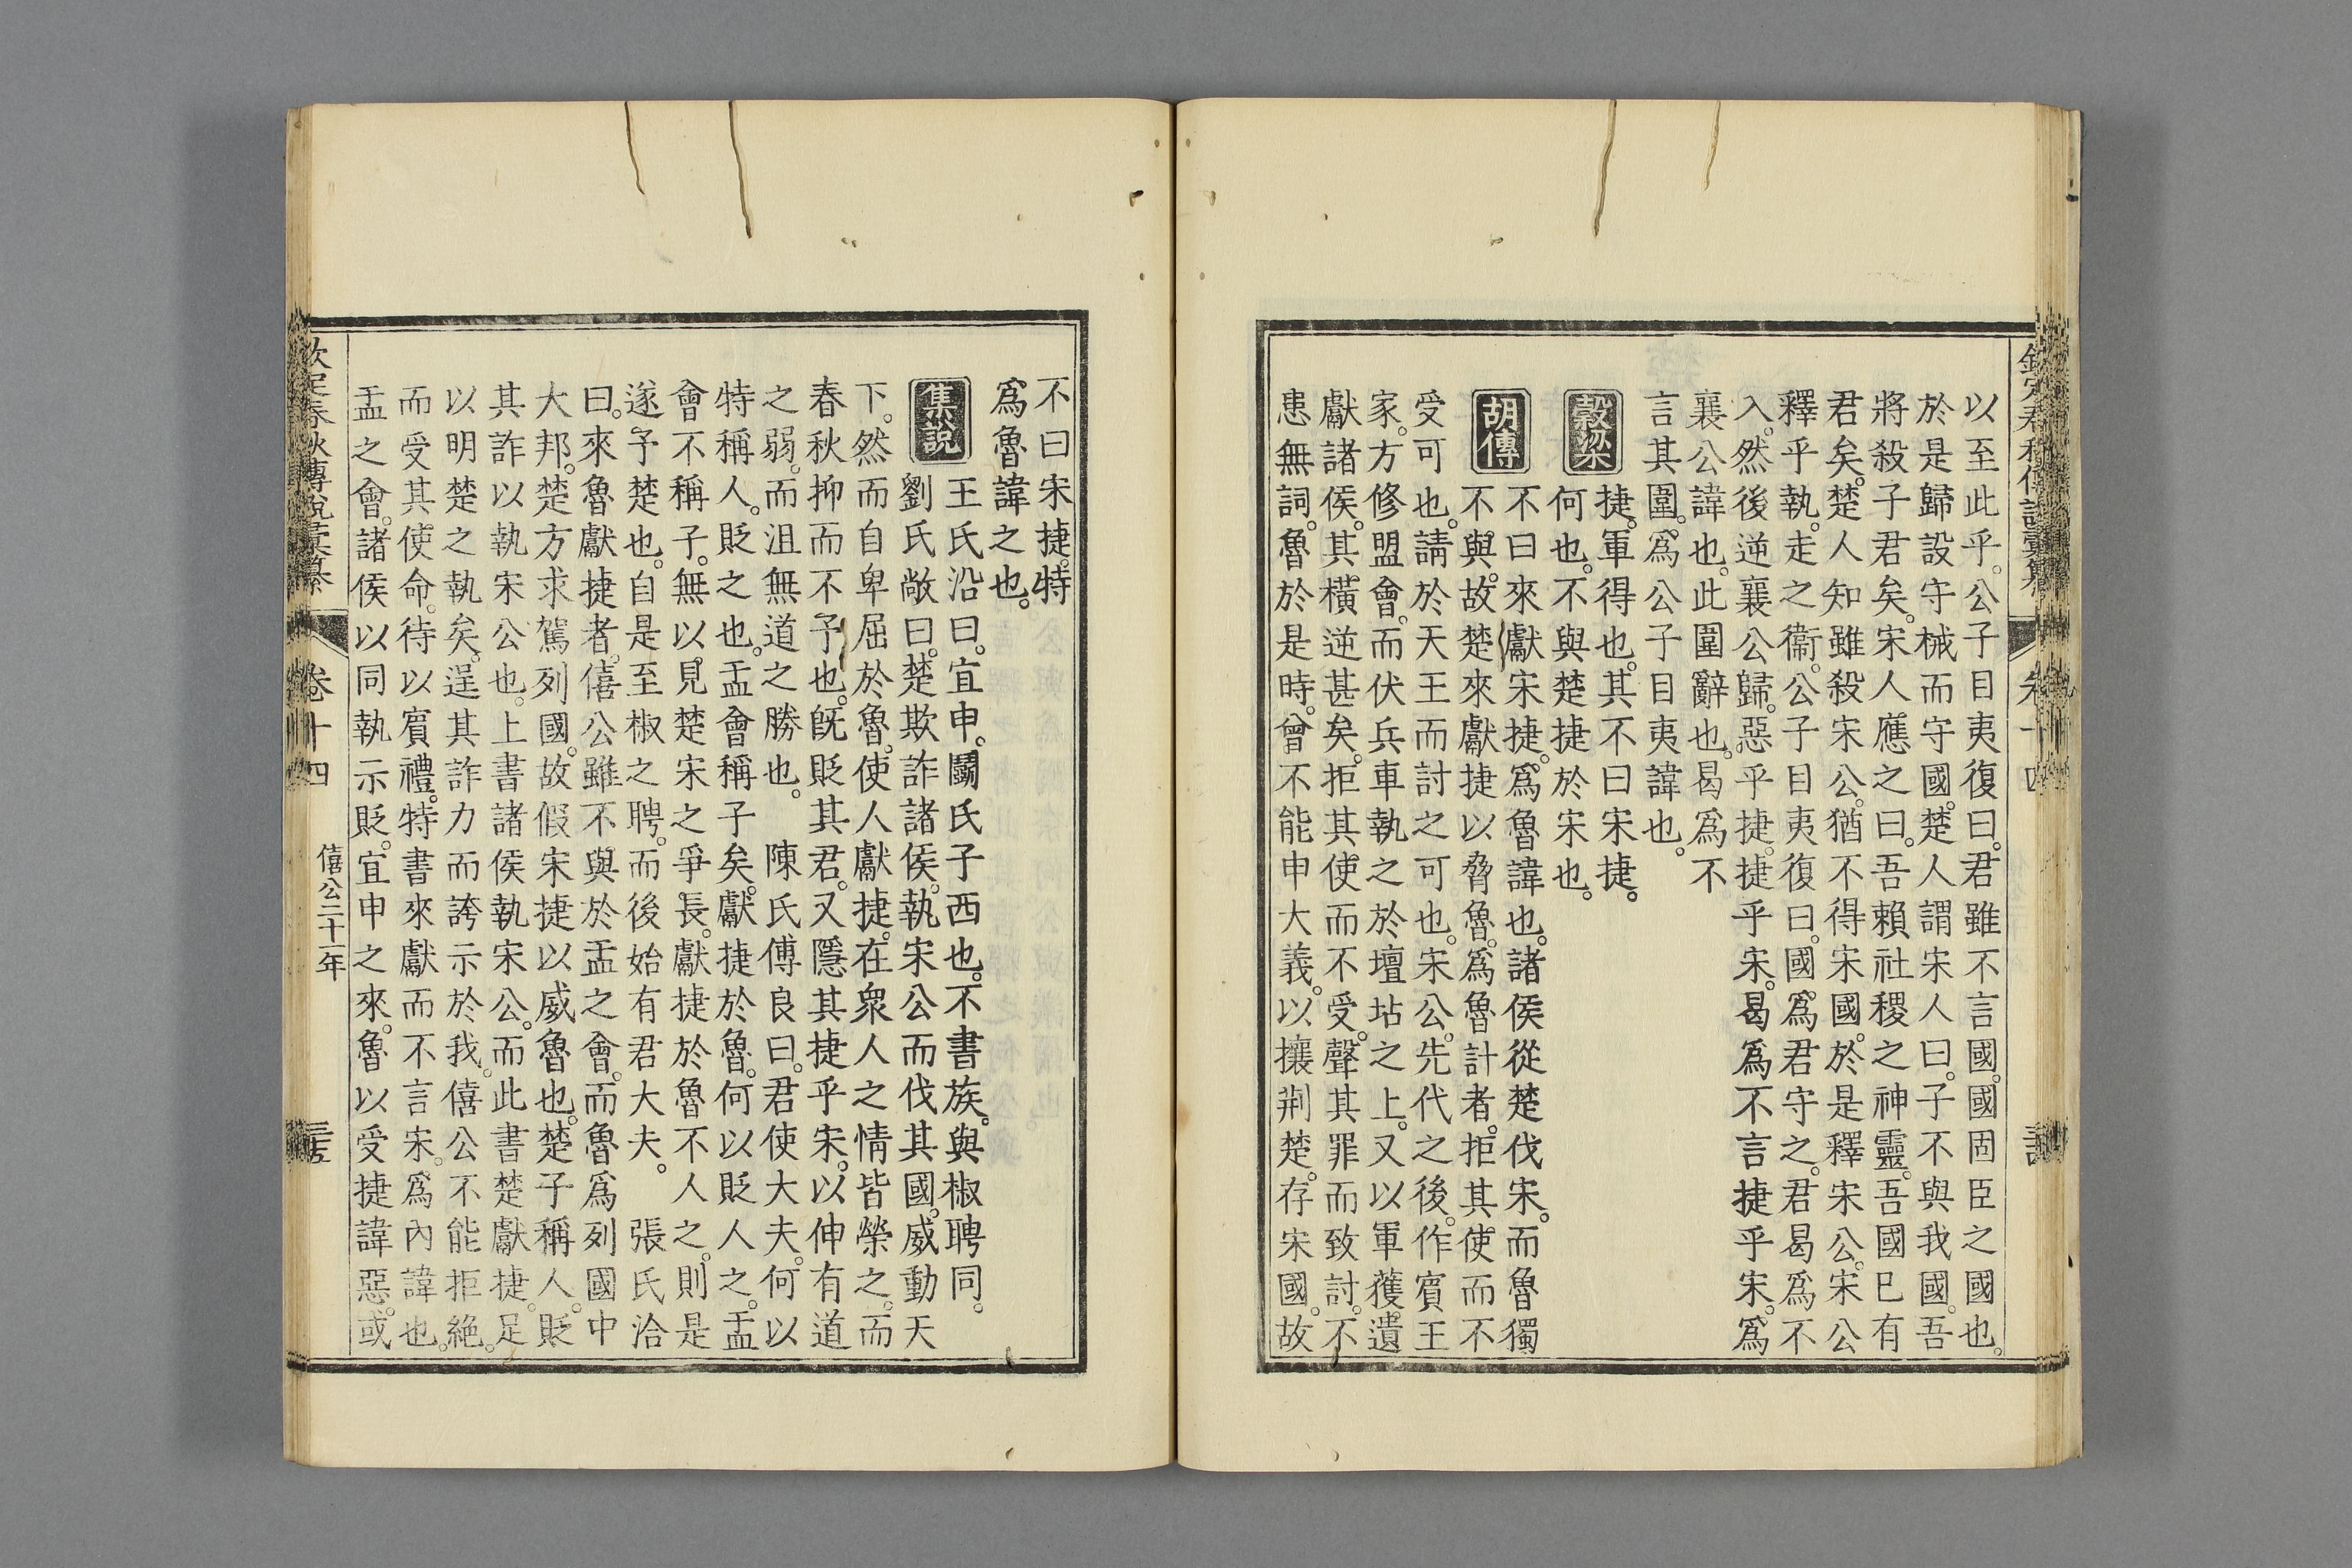 以至此乎。公子目夷復曰。君雖不言國。國固臣之國也。
於是歸設守械而守國。楚人謂宋人曰。子不與我國。吾
將殺子君矣。宋人應之曰。吾賴社稷之神靈。吾國巳有
君矣。楚人知雖殺宋公。猶不得宋國。於是釋宋公。宋公
釋乎執。走之衞。公子目夷復曰。國爲君守之。君曷爲不
入。然後逆襄公歸。惡乎捷。捷乎宋。曷爲不言捷乎宋。爲
襄公諱也。此圍辭也。曷爲不
言其圍。爲公子目夷諱也。
穀梁
捷。軍得也。其不曰宋捷。
何也。不與楚捷於宋也。
胡傳
不曰來獻宋捷。爲魯諱也。諸侯從楚伐宋。而魯獨
不與。故楚來獻捷以脅魯。爲魯計者。拒其使而不
受可也。請於天王而討之可也。宋公。先代之後。作賓王
家。方修盟會。而伏兵車執之於壇坫之上。又以軍獲。遺
獻諸侯。其橫逆甚矣。拒其使而不受。聲其罪而致討。不
患無詞。魯於是時。曾不能申大義。以攘荆楚。存宋國。故
不曰宋捷。特
爲魯諱之也。
集說
王氏沿曰。宜申。鬬氏子西也。不書族。與椒聘同。
劉氏敞曰。楚欺詐諸侯。執宋公而伐其國。威動天
下。然而自卑屈於魯。使人獻捷。在衆人之情皆榮之。而
春秋抑而不予也。旣貶其君。又隱其捷乎宋。以伸有道
之弱。而沮無道之勝也。 陳氏傅良曰。君使大夫。何以
特稱人。貶之也。盂會稱子矣。獻捷於魯。何以貶人之。盂
會不稱子。無以見楚宋之爭長。獻捷於魯不人之。則是
遂予楚也。自是至椒之聘。而後始有君大夫。 張氏洽
曰。來魯獻捷者。僖公雖不與於盂之會。而魯爲列國中
大邦。楚方求駕列國。故假宋捷以威魯也。楚子稱人。貶
其詐以執宋公也。上書諸侯執宋公。而此書楚獻捷。足
以明楚之執矣。逞其詐力而誇示於我。僖公不能拒絶。
而受其使命。待以賓禮。特書來獻而不言宋。爲內諱也。
盂之會。諸侯以同執示貶。宜申之來。魯以受捷諱惡。或
欽定春秋傳說彙纂 卷十四 僖公二十一年